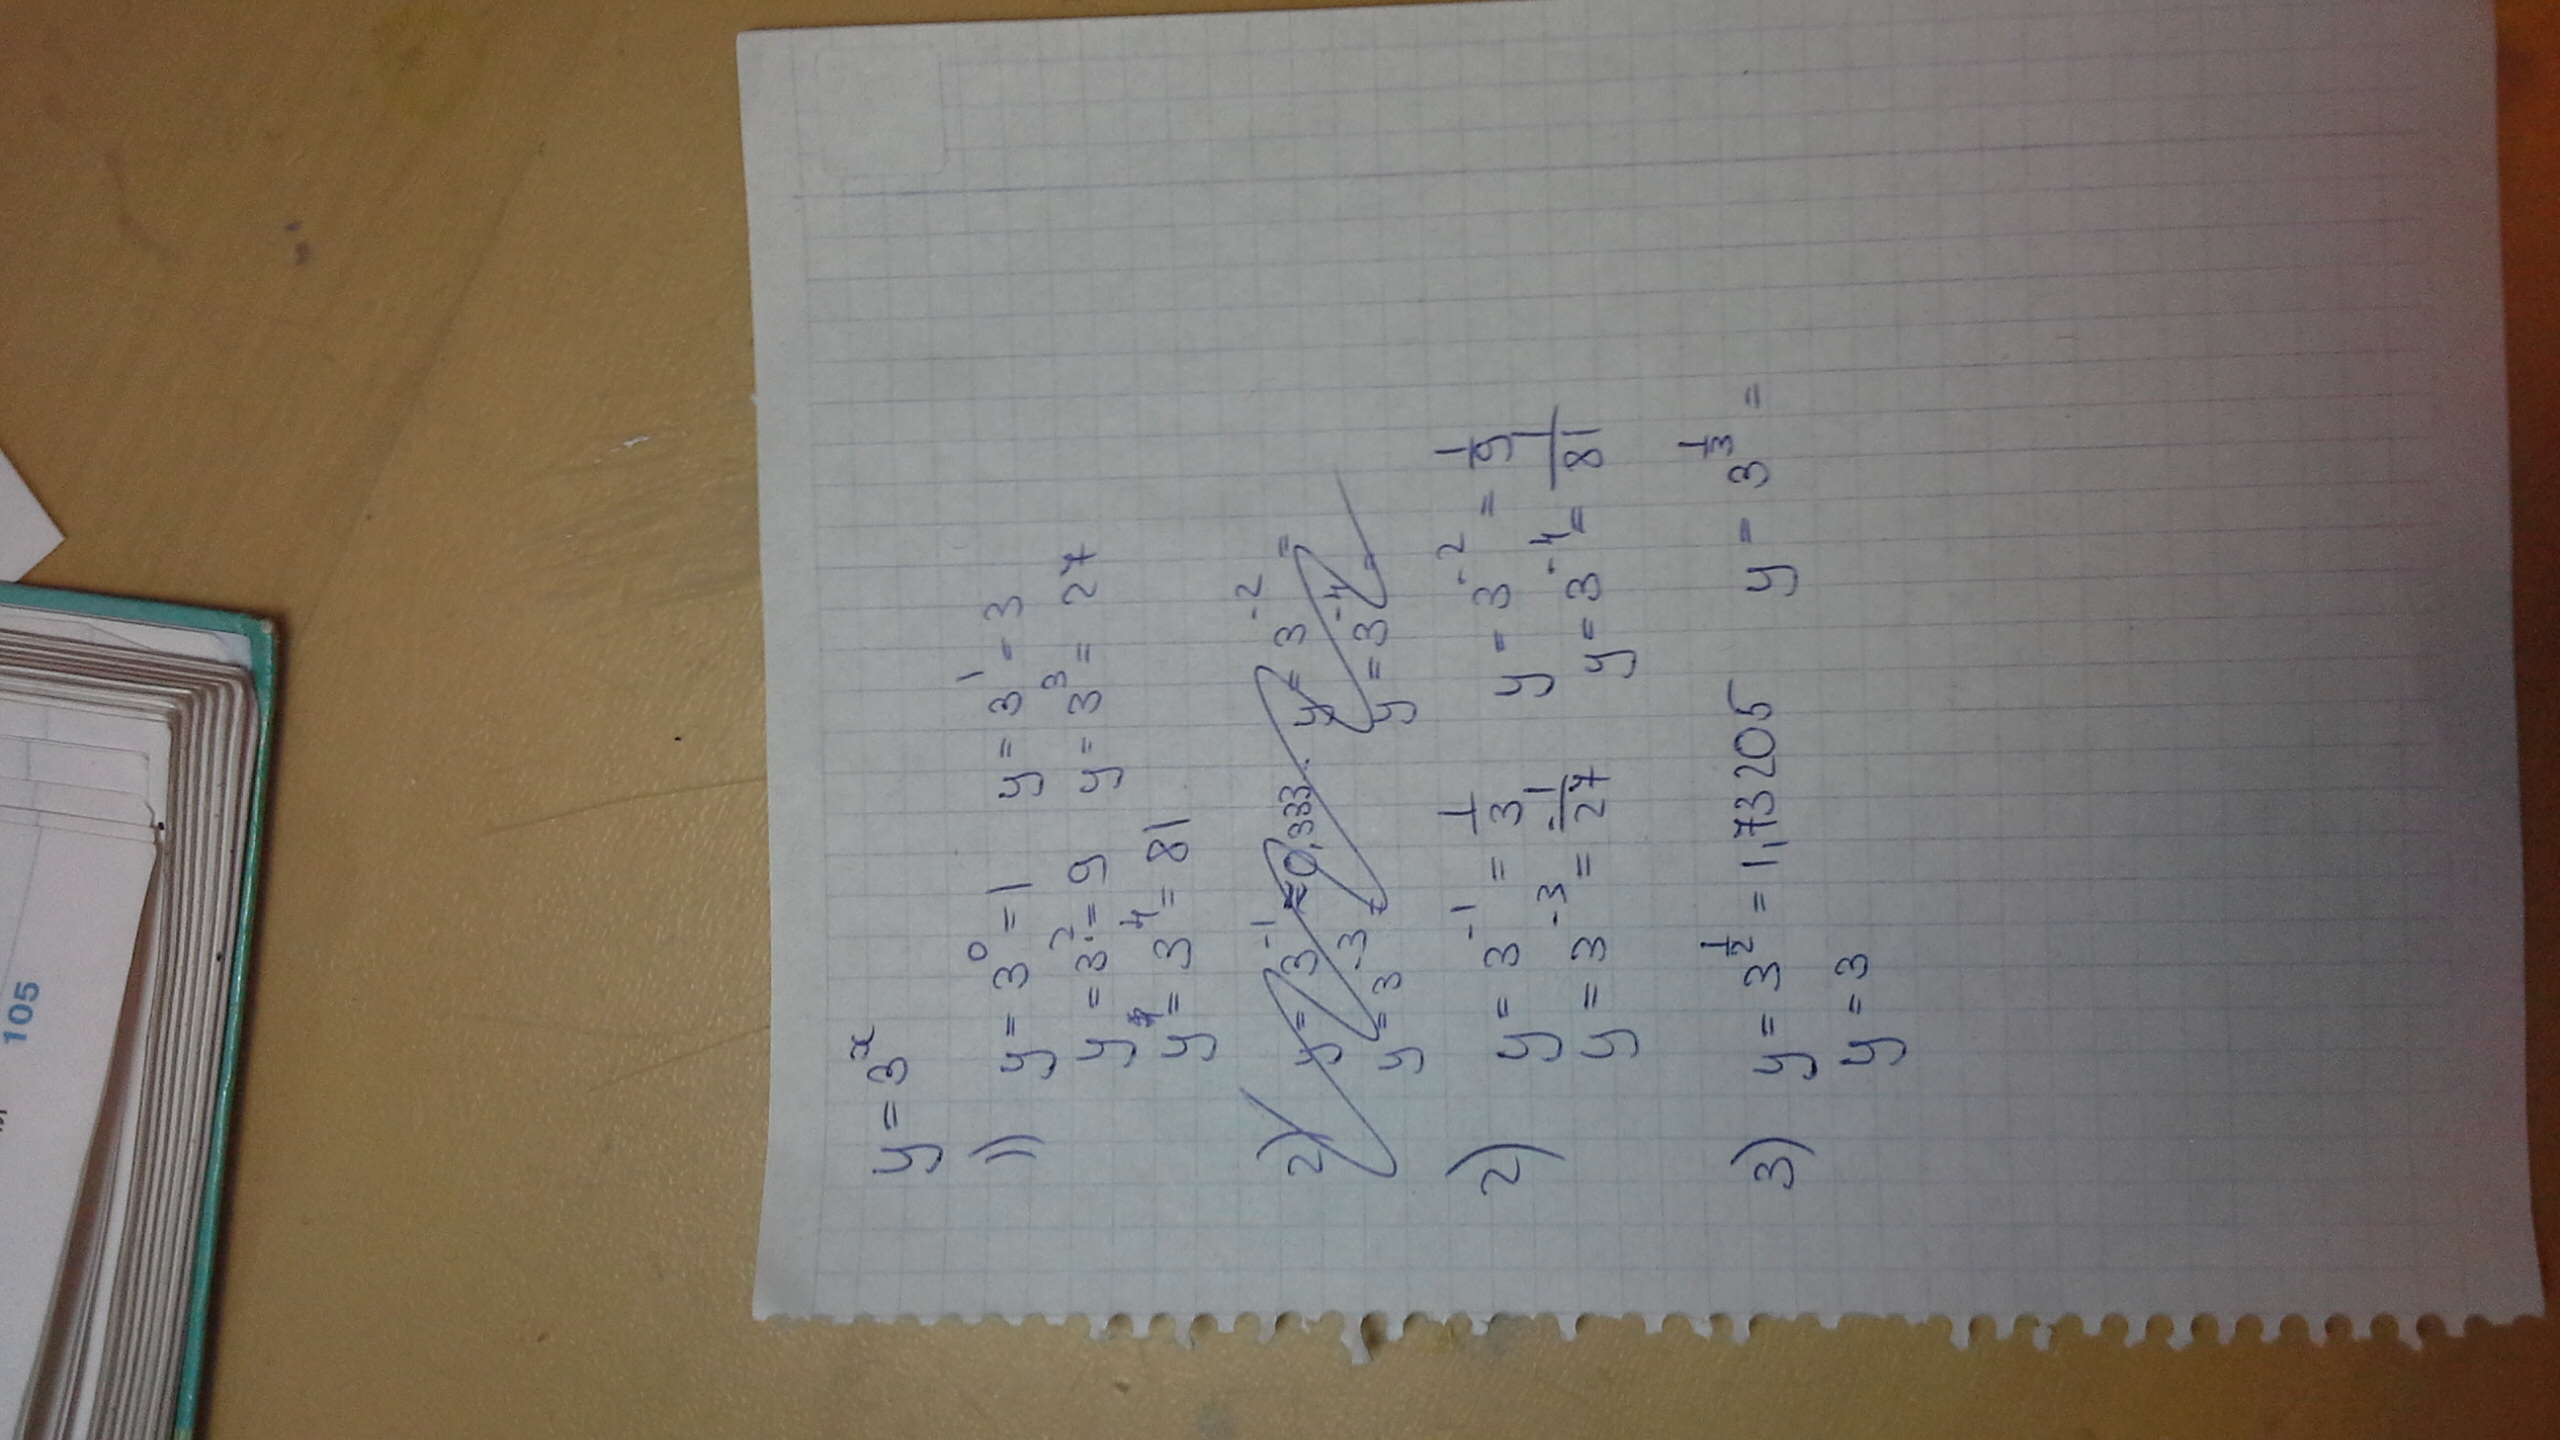 y = 3^x
1) y = 3^0 = 1 y = 3^1 = 3
y = 3^2 = 9 y = 3^3 = 27
y = 3^4 = 81
2) y = 3^-1 ≈ 0,333.. y = 3^-2 =
y = 3^-3 = y = 3^-4 =
2) y = 3^-1 = 1/3 y = 3^-2 = 1/9
y = 3^-3 = 1/27 y = 3^-4 = 1/81
3) y = 3^1/2 = 1,73205 y = 3^1/3 =
y = 3
105